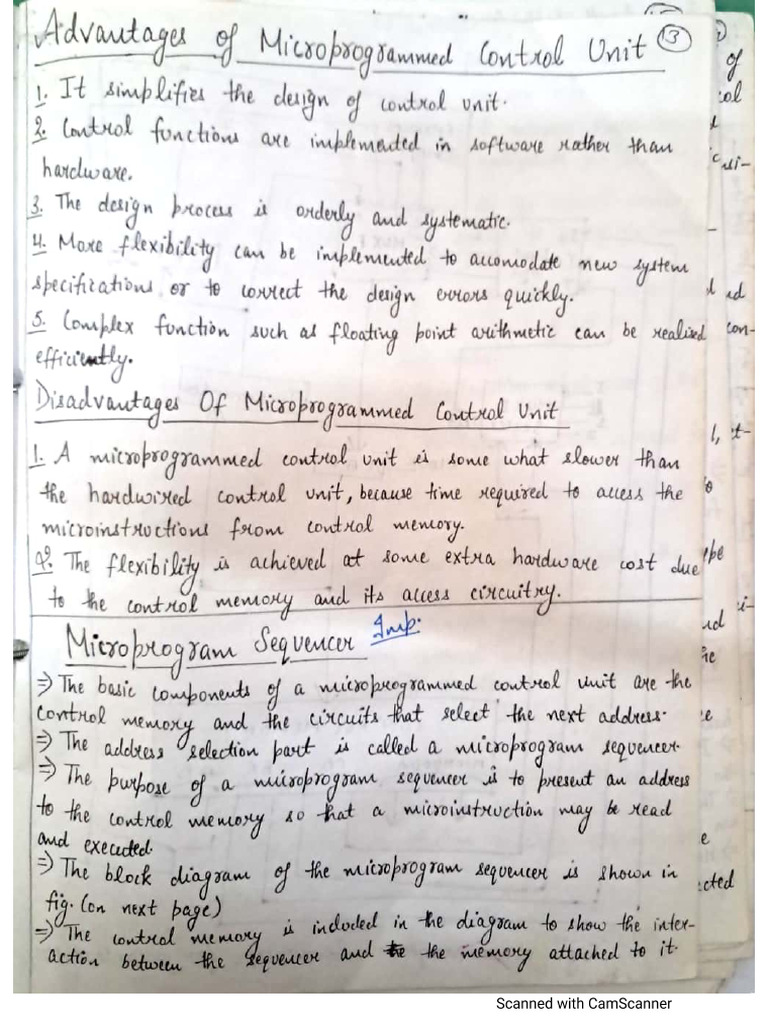 Advantages of Microprogrammed Control Unit (3)
1. It simplifies the design of control unit.
2. Control functions are implemented in software rather than
hardware.
3. The design process is orderly and systematic.
4. More flexibility can be implemented to accomodate new system
specifications or to correct the design errors quickly.
5. Complex function such as floating point arithmetic can be realized
efficiently.
Disadvantages Of Microprogrammed Control Unit
1. A microprogrammed control unit is some what slower than
the hardwired control unit, because time required to access the
microinstructions from control memory.
2. The flexibility is achieved at some extra hardware cost due
to the control memory and its access circuitry.
Microprogram Sequencer Imp.
⇒ The basic components of a microprogrammed control unit are the
control memory and the circuits that select the next address.
⇒ The address selection part is called a microprogram sequencer.
⇒ The purpose of a microprogram sequencer is to present an address
to the control memory so that a microinstruction may be read
and executed.
⇒ The block diagram of the microprogram sequencer is shown in
fig. (on next page)
⇒ The control memory is included in the diagram to show the inter-
action between the sequencer and the memory attached to it.
Scanned with CamScanner